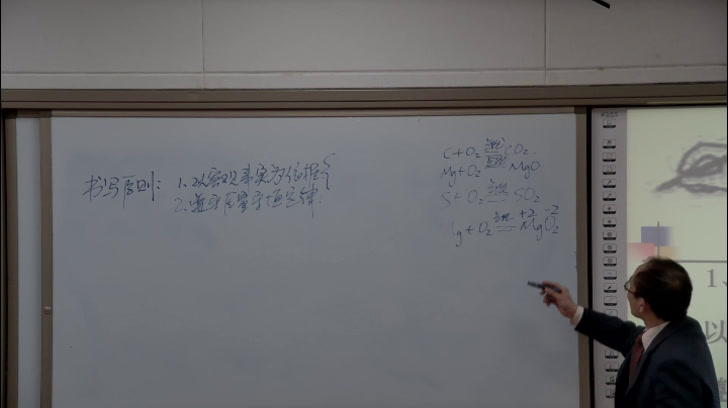 书写原则：1.以客观事实为依据
2.遵守质量守恒定律.
C+O₂ 点燃 CO₂
Mg+O₂ 点燃 MgO
S+O₂ 点燃 SO₂
Mg+O₂ 点燃 +2 -2 MgO₂
1、
以